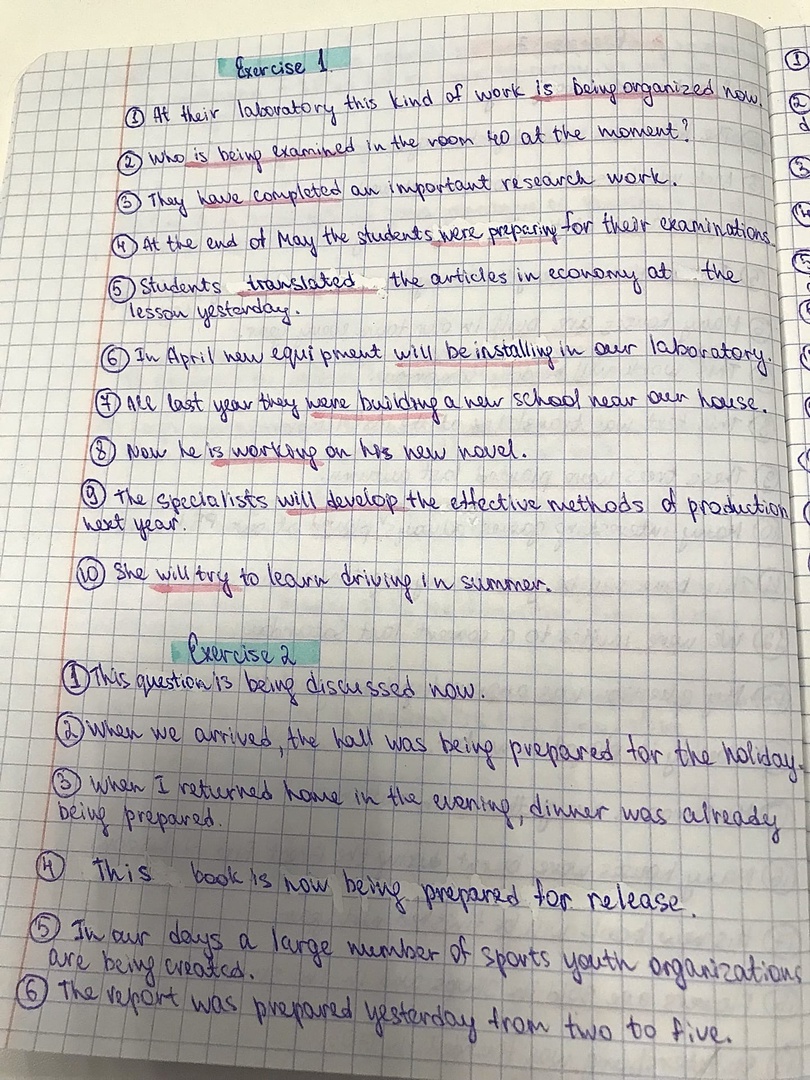 Exercise 1
① At their laboratory this kind of work is being organized now.
② Who is being examined in the room 40 at the moment?
③ They have completed an important research work.
④ At the end of May the students were preparing for their examinations.
⑤ Students translated the articles in economy at the
lesson yesterday.
⑥ In April new equipment will be installing in our laboratory.
⑦ All last year they were building a new school near our house.
⑧ Now he is working on his new novel.
⑨ The specialists will develop the effective methods of production
next year.
⑩ She will try to learn driving in summer.
Exercise 2
① This question is being discussed now.
② When we arrived, the hall was being prepared for the holiday.
③ When I returned home in the evening, dinner was already
being prepared.
④ This book is now being prepared for release.
⑤ In our days a large number of sports youth organizations
are being created.
⑥ The report was prepared yesterday from two to five.
①
②
d
③
④
⑤